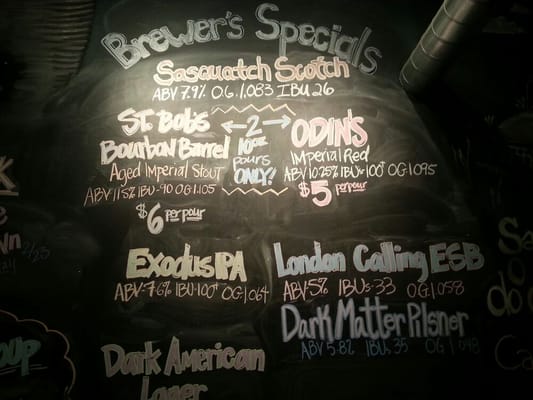 Brewer's Specials
Sasquatch Scotch
ABV 7.9% OG 1.083 IBU 26
St. Bob's
Bourbon Barrel
Aged Imperial Stout
ABV 11.5% IBU-90 OG 1.105
$6 per pour
← 2 →
10oz
pours
ONLY!
ODIN'S
Imperial Red
ABV 10.25% IBU 100+ OG 1.095
$5 per pour
Exodus IPA
ABV-7.6% IBU-100+ OG 1.064
London Calling ESB
ABV 5% IBU's-33 OG 1.058
Dark Matter Pilsner
ABV 5.8% IBU 35 OG 1.048
Dark American
Lager